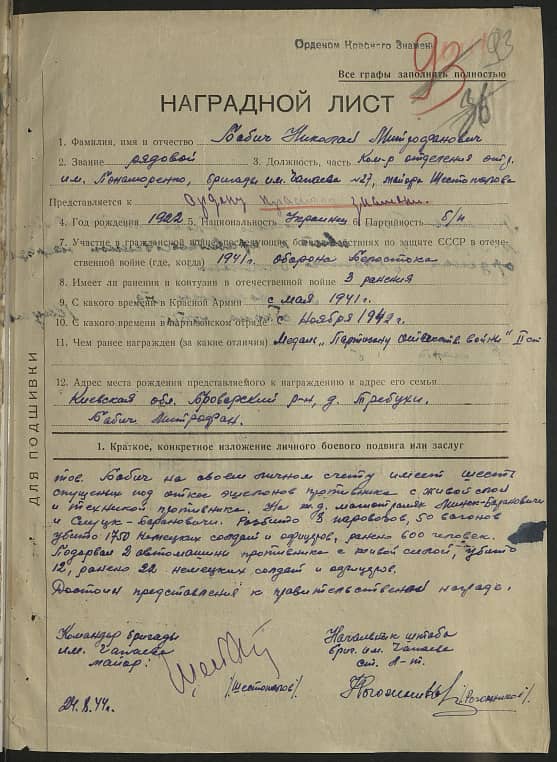 Орденом Красного Знамени
93
93
36
Все графы заполнять полностью
НАГРАДНОЙ ЛИСТ
1. Фамилия, имя и отчество Бабич Николай Митрофанович
2. Звание рядовой 3. Должность, часть Ком-р отделения отр.
им. Понаморенко, бригады им. Чапаева №27, майора Шестопалова
Представляется к ордену красного знамени.
4. Год рождения 1922 5. Национальность Украинец 6. Партийность б/п
7. Участие в гражданской войне, последующих боевых действиях по защите СССР в отече-
ственной войне (где, когда) 1941г. оборона Белостока
8. Имеет ли ранения и контузии в отечественной войне 3 ранения
9. С какого времени в Красной Армии с мая 1941г.
10. С какого времени в партизанском отряде с Ноября 1942г.
11. Чем ранее награжден (за какие отличия) Медаль „Партизану отечеств. войны" II ст
12. Адрес места рождения представляемого к награждению и адрес его семьи
Киевская обл. Броварский р-н, д. Требухи.
Бабич Митрофан.
ДЛЯ ПОДШИВКИ
1. Краткое, конкретное изложение личного боевого подвига или заслуг
тов. Бабич на своем личном счету имеет шесть
спущеных под откос эшелонов противника с живой силой
и техникой противника. На ж.д. магистралях Минск-Барановичи
и Слуцк-Барановичи. Разбито 8 паровозов, 50 вагонов
убито 1750 немецких солдат и офицеров, ранено 600 человек.
Подорвал 2 автомашины противника с живой силой, убито
12, ранено 22 немецких солдат и офицеров.
Достоин представления к правительственной награде.
Командир бригады
им. Чапаева
майор: /Шестопалов/
24.8.44г.
Начальник штаба
бриг. им. Чапаева
ст. л-т.
/Рогожников/.